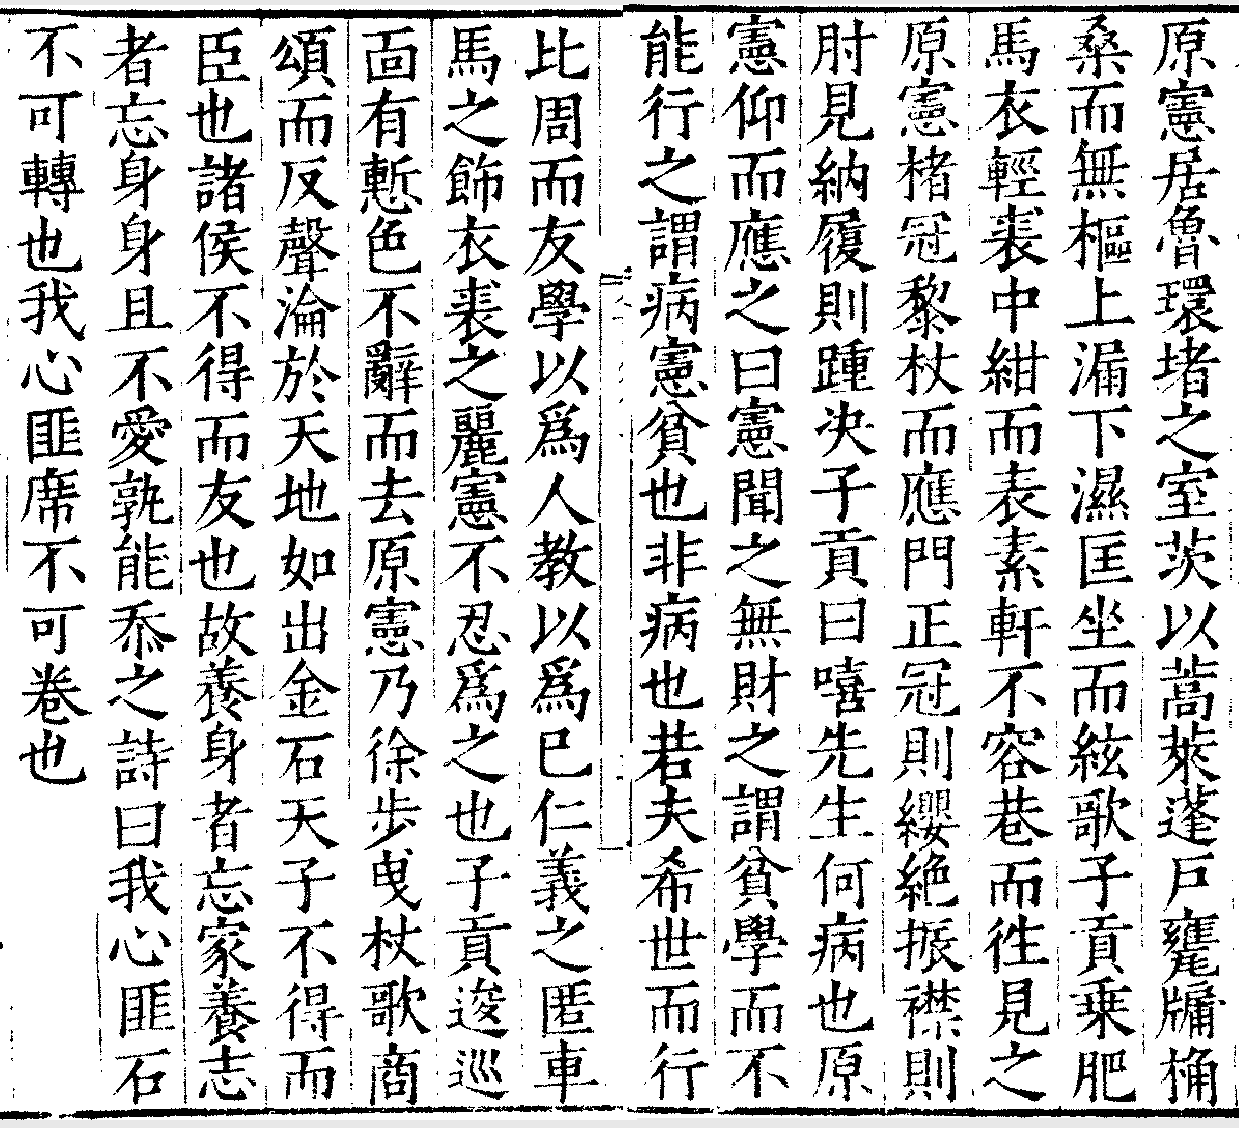 原憲居魯環堵之室茨以蒿萊蓬戶甕牖桷
桑而無樞上漏下濕匡坐而絃歌子貢乗肥
馬衣輕裘中紺而表素軒不容巷而徃見之
原憲楮冠黎杖而應門正冠則纓絶振襟則
肘見納履則踵决子貢曰嘻先生何病也原
憲仰而應之曰憲聞之無財之謂貧學而不
能行之謂病憲貧也非病也若夫希世而行
比周而友學以爲人教以爲巳仁義之匿車
馬之飾衣裘之麗憲不忍爲之也子貢逡巡
靣有慙色不辭而去原憲乃徐步曵杖歌商
頌而反聲淪於天地如出金石天子不得而
臣也諸侯不得而友也故養身者忘家養志
者忘身身且不愛孰能忝之詩曰我心匪石
不可轉也我心匪席不可卷也